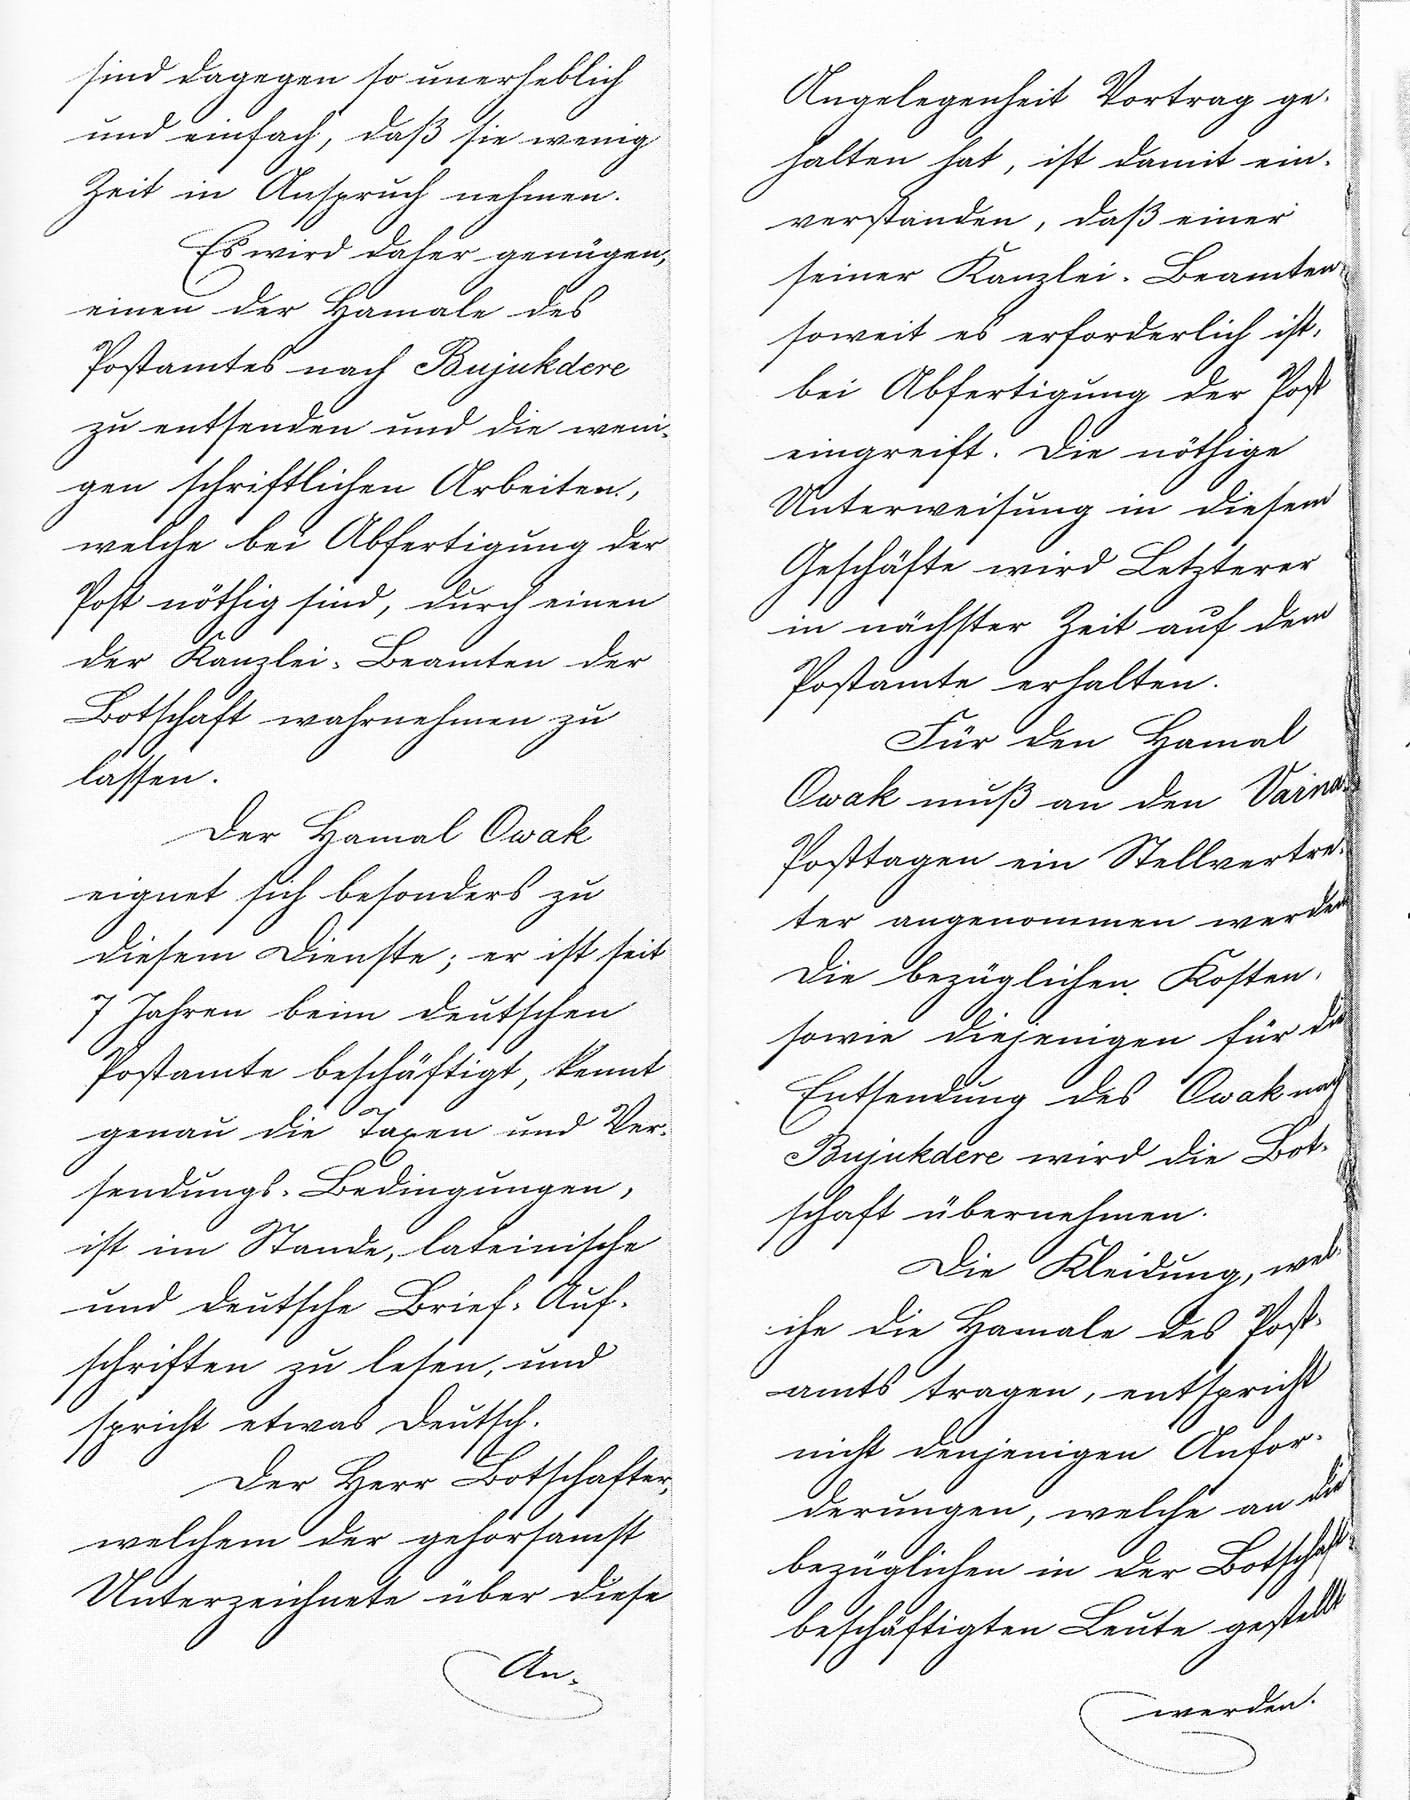 sind dagegen so unerheblich
und einfach, daß sie wenig
Zeit in Anspruch nehmen.
Es wird daher genügen,
einen der Hamale des
Postamtes nach Bujukdere
zu entsenden und die weni-
gen schriftlichen Arbeiten,
welche bei Abfertigung der
Post nöthig sind, durch einen
der Kanzlei-Beamten der
Botschaft wahrnehmen zu
lassen.
Der Hamal Owak
eignet sich besonders zu
diesem Dienste; er ist seit
7 Jahren beim deutschen
Postamte beschäftigt, kennt
genau die Taxen und Ver-
sendungs-Bedingungen,
ist im Stande, lateinische
und deutsche Brief-Auf-
schriften zu lesen, und
spricht etwas deutsch.
Der Herr Botschafter,
welchem der gehorsamst
Unterzeichnete über diese
An-
Angelegenheit Vortrag ge-
halten hat, ist damit ein-
verstanden, daß einer
seiner Kanzlei-Beamten,
soweit es erforderlich ist,
bei Abfertigung der Post
eingreift. Die nöthige
Unterweisung in diesem
Geschäfte wird Letzterer
in nächster Zeit auf dem
Postamte erhalten.
Für den Hamal
Owak muß an den Varna-
Posttagen ein Stellvertre-
ter angenommen werden
Die bezüglichen Kosten,
sowie diejenigen für die
Entsendung des Owak nach
Bujukdere wird die Bot-
schaft übernehmen.
Die Kleidung, wel-
che die Hamale des Post-
amts tragen, entspricht
nicht denjenigen Anfor-
derungen, welche an die
bezüglichen in der Botschaft
beschäftigten Leute gestellt
werden.